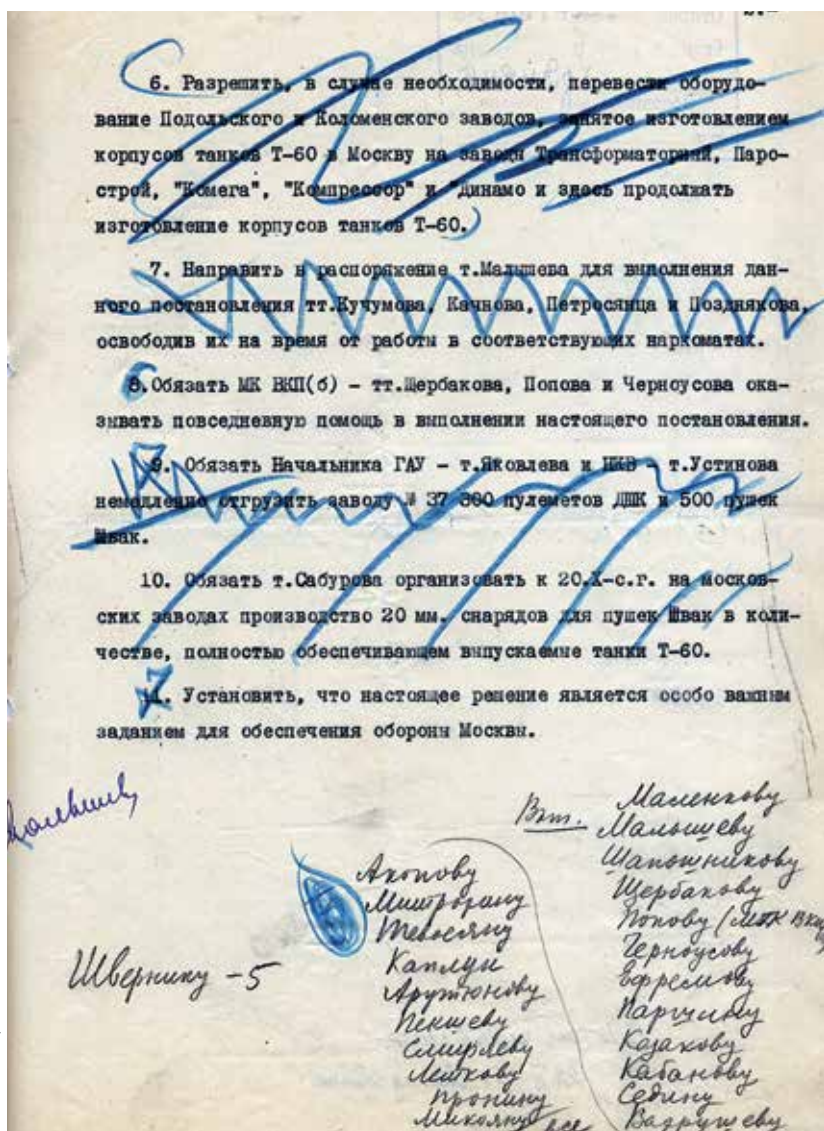 6. Разрешить, в случае необходимости, перевести оборудо-
вание Подольского и Коломенского заводов, занятое изготовлением
корпусов танков Т-60 в Москву на заводы Трансформаторный, Паро-
строй, "Комега", "Компрессор" и "Динамо и здесь продолжать
изготовление корпусов танков Т-60.
7. Направить в распоряжение т.Малышева для выполнения дан-
ного постановления тт.Кучумова, Качнова, Петросянца и Позднякова,
освободив их на время от работы в соответствующих наркоматах.
8.Обязать МК ВКП(б) - тт.Щербакова, Попова и Черноусова ока-
зывать повседневную помощь в выполнении настоящего постановления.
9. Обязать Начальника ГАУ - т.Яковлева и НКВ - т.Устинова
немедленно отгрузить заводу № 37 300 пулеметов ДШК и 500 пушек
Швак.
10. Обязать т.Сабурова организовать к 20.X-с.г. на москов-
ских заводах производство 20 мм. снарядов для пушек Швак в коли-
честве, полностью обеспечивающем выпускаемые танки Т-60.
11. Установить, что настоящее решение является особо важным
заданием для обеспечения обороны Москвы.
Швернику - 5
Акопову
Митрофану
Тевосяну
Каплун
Арутюнову
Пекшеву
Пронину
Микояну
все
Маленкову
Малышеву
Шапошникову
Щербакову
Попову (МГК ВКП
Черноусову
Ефремову
Паршину
Казакову
Кабанову
Седину
Вахрушеву